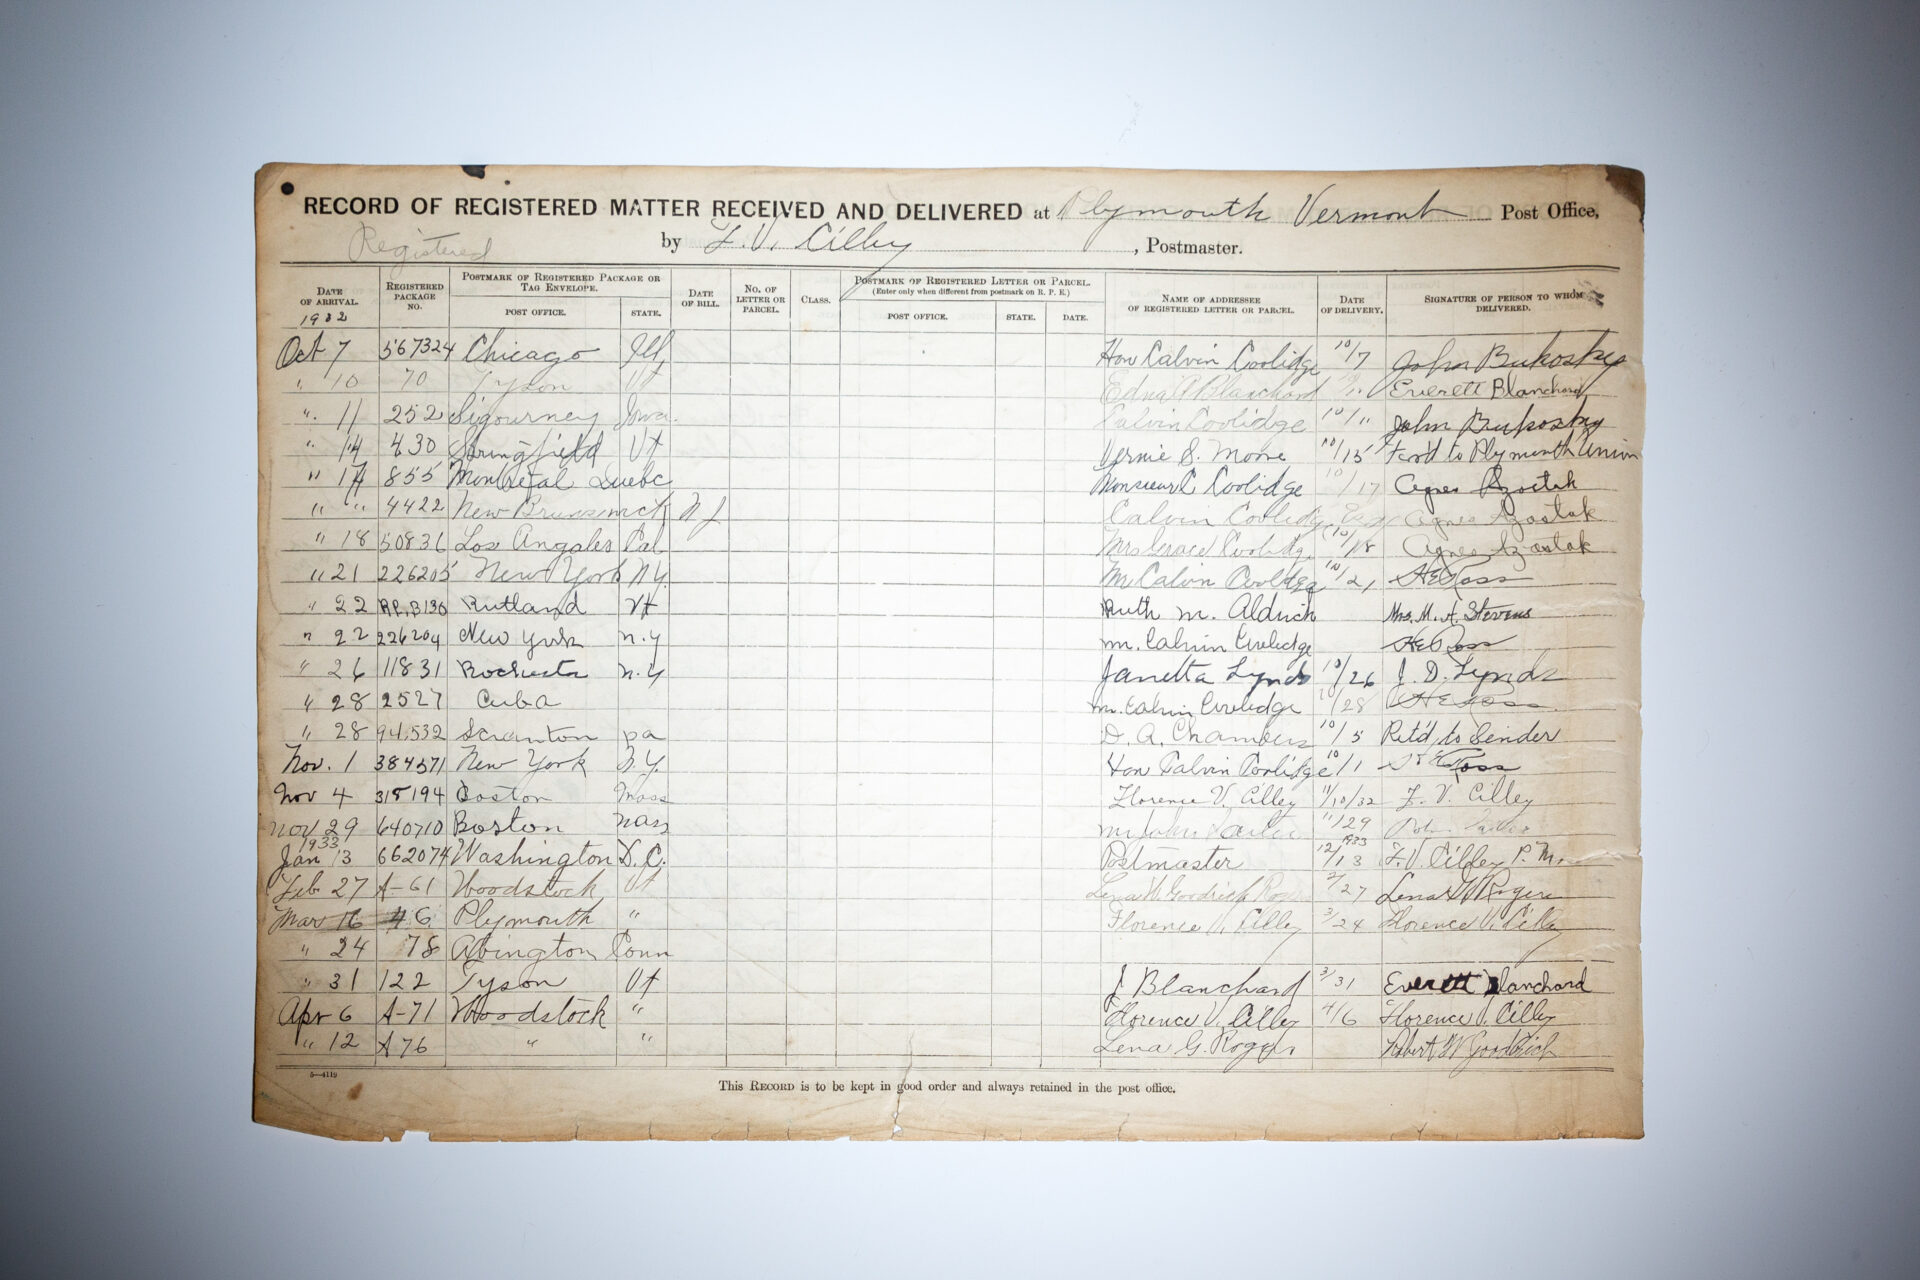 RECORD OF REGISTERED MATTER RECEIVED AND DELIVERED at Plymouth Vermont Post Office,
Registered by F. V. Cilley, Postmaster.
DATE OF ARRIVAL. REGISTERED PACKAGE NO. POSTMARK OF REGISTERED PACKAGE OR TAG ENVELOPE. DATE OF BILL. NO. OF LETTER OR PARCEL. CLASS. POSTMARK OF REGISTERED LETTER OR PARCEL. (Enter only when different from postmark on R. P. E.) NAME OF ADDRESSEE OF REGISTERED LETTER OR PARCEL. DATE OF DELIVERY. SIGNATURE OF PERSON TO WHOM DELIVERED.
1932 POST OFFICE. STATE. POST OFFICE. STATE. DATE.
Oct 7 567324 Chicago Ill Hon Calvin Coolidge 10/7 John Bukosky
" 10 70 Tyson Vt Edna A Blanchard Everett Blanchard
" 11 252 Sigourney Iowa. Calvin Coolidge 10/11 John Bukosky
" 14 430 Springfield Vt Vernie S. Moore 10/15 Ford to Plymouth Union
" 17 855 Montreal Quebc Monsieur C Coolidge 10/17 Agnes Azostak
" " 4422 New Brunswick N J Calvin Coolidge Agnes Azostak
" 18 50836 Los Angales Cal Mrs Grace Coolidge 10/18 Agnes Azostak
" 21 226205 New York N.Y. Mr Calvin Coolidge 10/21 H E Ross
" 22 RP.B130 Rutland Vt Ruth M. Aldrich Mrs. M. A. Stevens
" 22 226204 New York N.Y Mr. Calvin Coolidge H E Ross
" 26 11831 Rochester N.Y Janetta Lynds 10/26 J. D. Lynds
" 28 2527 Cuba Mr. Calvin Coolidge 10/28 H E Ross
" 28 94,532 Scranton Pa D. A. Chambers 10/5 Ret'd to Sender
Nov. 1 384571 New York N.Y. Hon Calvin Coolidge 10/1 H E Ross
Nov 4 318194 Boston Mass Florence V. Cilley 11/10/32 F. V. Cilley
Nov 29 640710 Boston Mass Mr John 11/29
1933 1933
Jan 13 662074 Washington D.C. Postmaster 12/13 F. V. Cilley P. M.
Feb 27 A-61 Woodstock Vt Lena W Goodrich 2/27 Lena W Rogers
Mar 16 46 Plymouth " Florence V. Cilley 3/24 Florence V. Cilley
" 24 78 Abington Conn
" 31 122 Tyson Vt J Blanchard 3/31 Everett Blanchard
Apr 6 A-71 Woodstock " Florence V. Cilley 4/6 Florence V. Cilley
" 12 A 76 " " Lena G. Rogers Robert W Goodrich
5—4119
This RECORD is to be kept in good order and always retained in the post office.